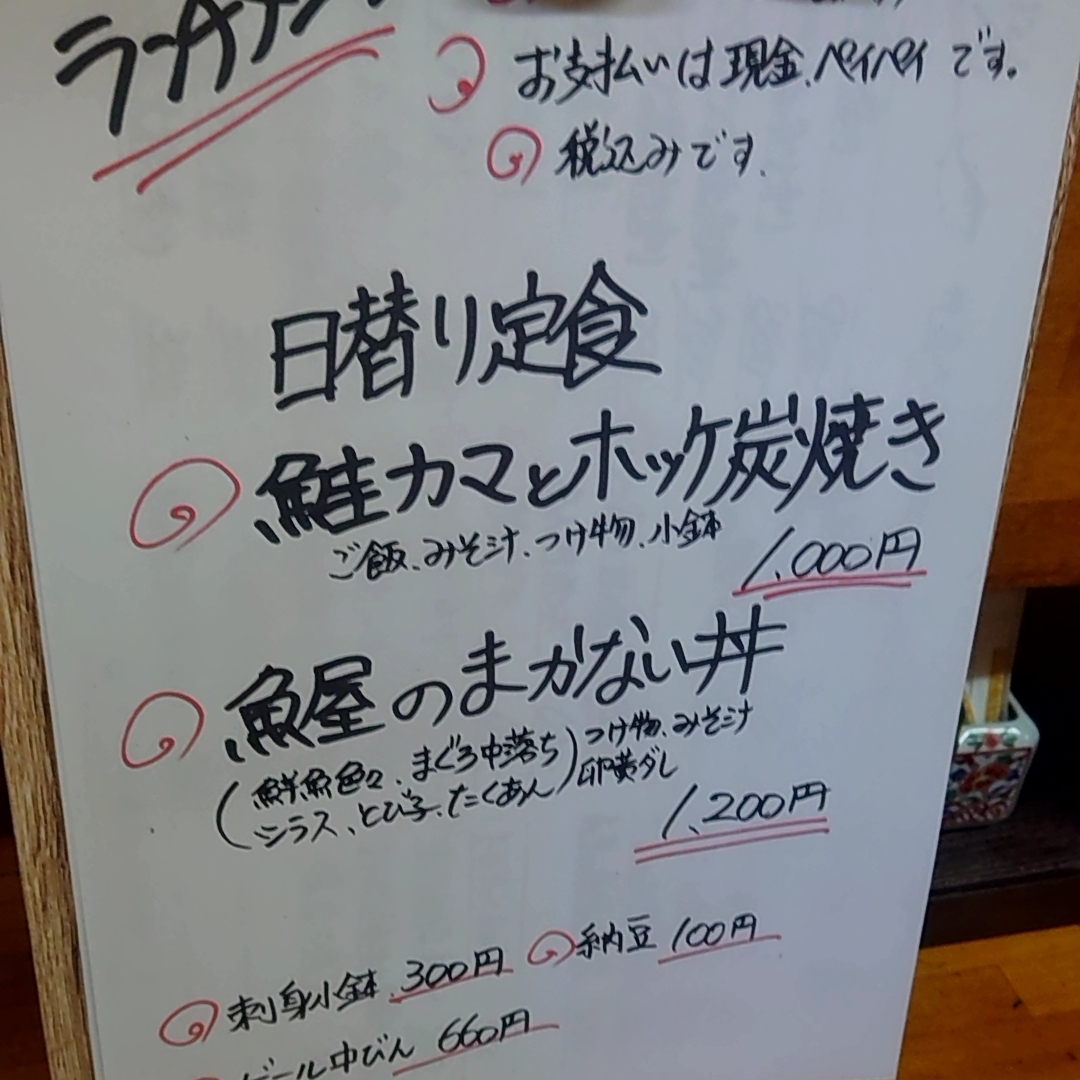 ランチ
お支払いは現金、ペイペイです。
税込みです.
日替り定食
鮭カマとホッケ炭焼き
ご飯、みそ汁、つけ物、小鉢
1,000円
魚屋のまかない丼
(鮮魚色々、まぐろ中落ち
シラス、とび子、たくあん)
つけ物、みそ汁
卵黄ダレ
1,200円
刺身小鉢 300円
納豆 100円
ビール中びん 660円